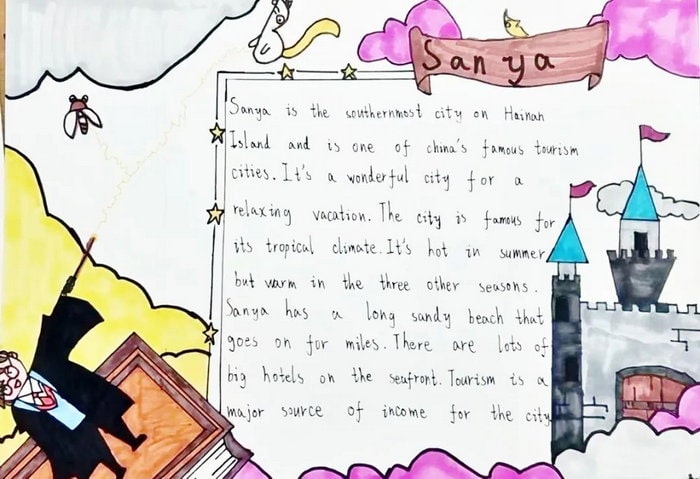 Sanya
Sanya is the southernmost city on Hainan
Island and is one of china's famous tourism
cities. It's a wonderful city for a
relaxing vacation. The city is famous for
its tropical climate. It's hot in summer
but warm in the three other seasons.
Sanya has a long sandy beach that
goes on for miles. There are lots of
big hotels on the seafront. Tourism is a
major source of income for the city